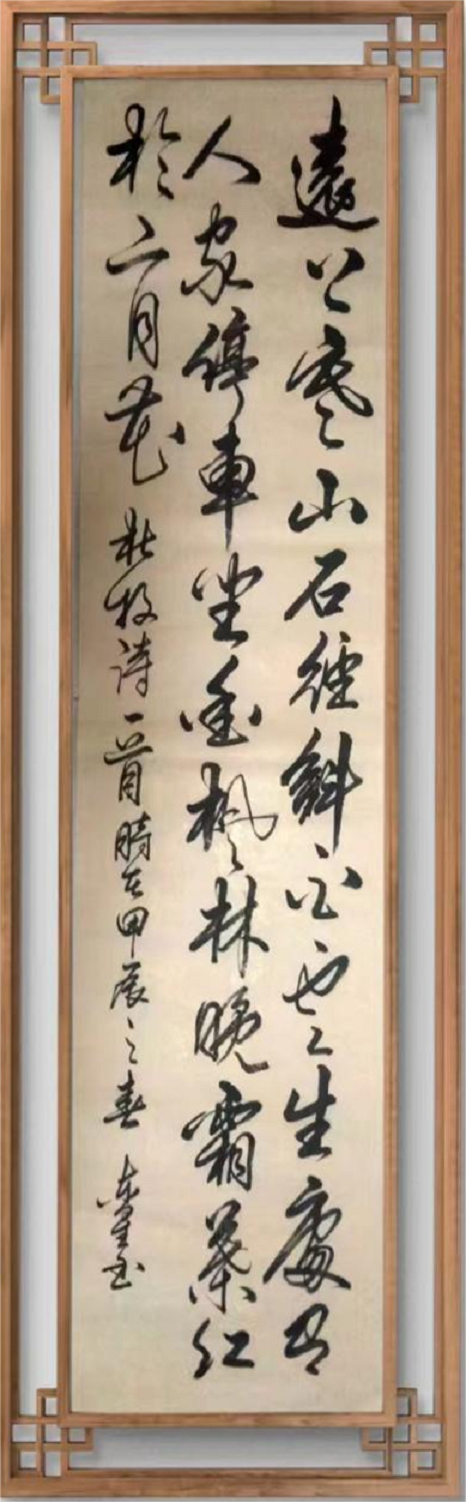 遠上寒山石徑斜白雲生處有
人家停車坐愛楓林晚霜葉紅
於二月花 杜牧詩一首時在甲辰之春 书